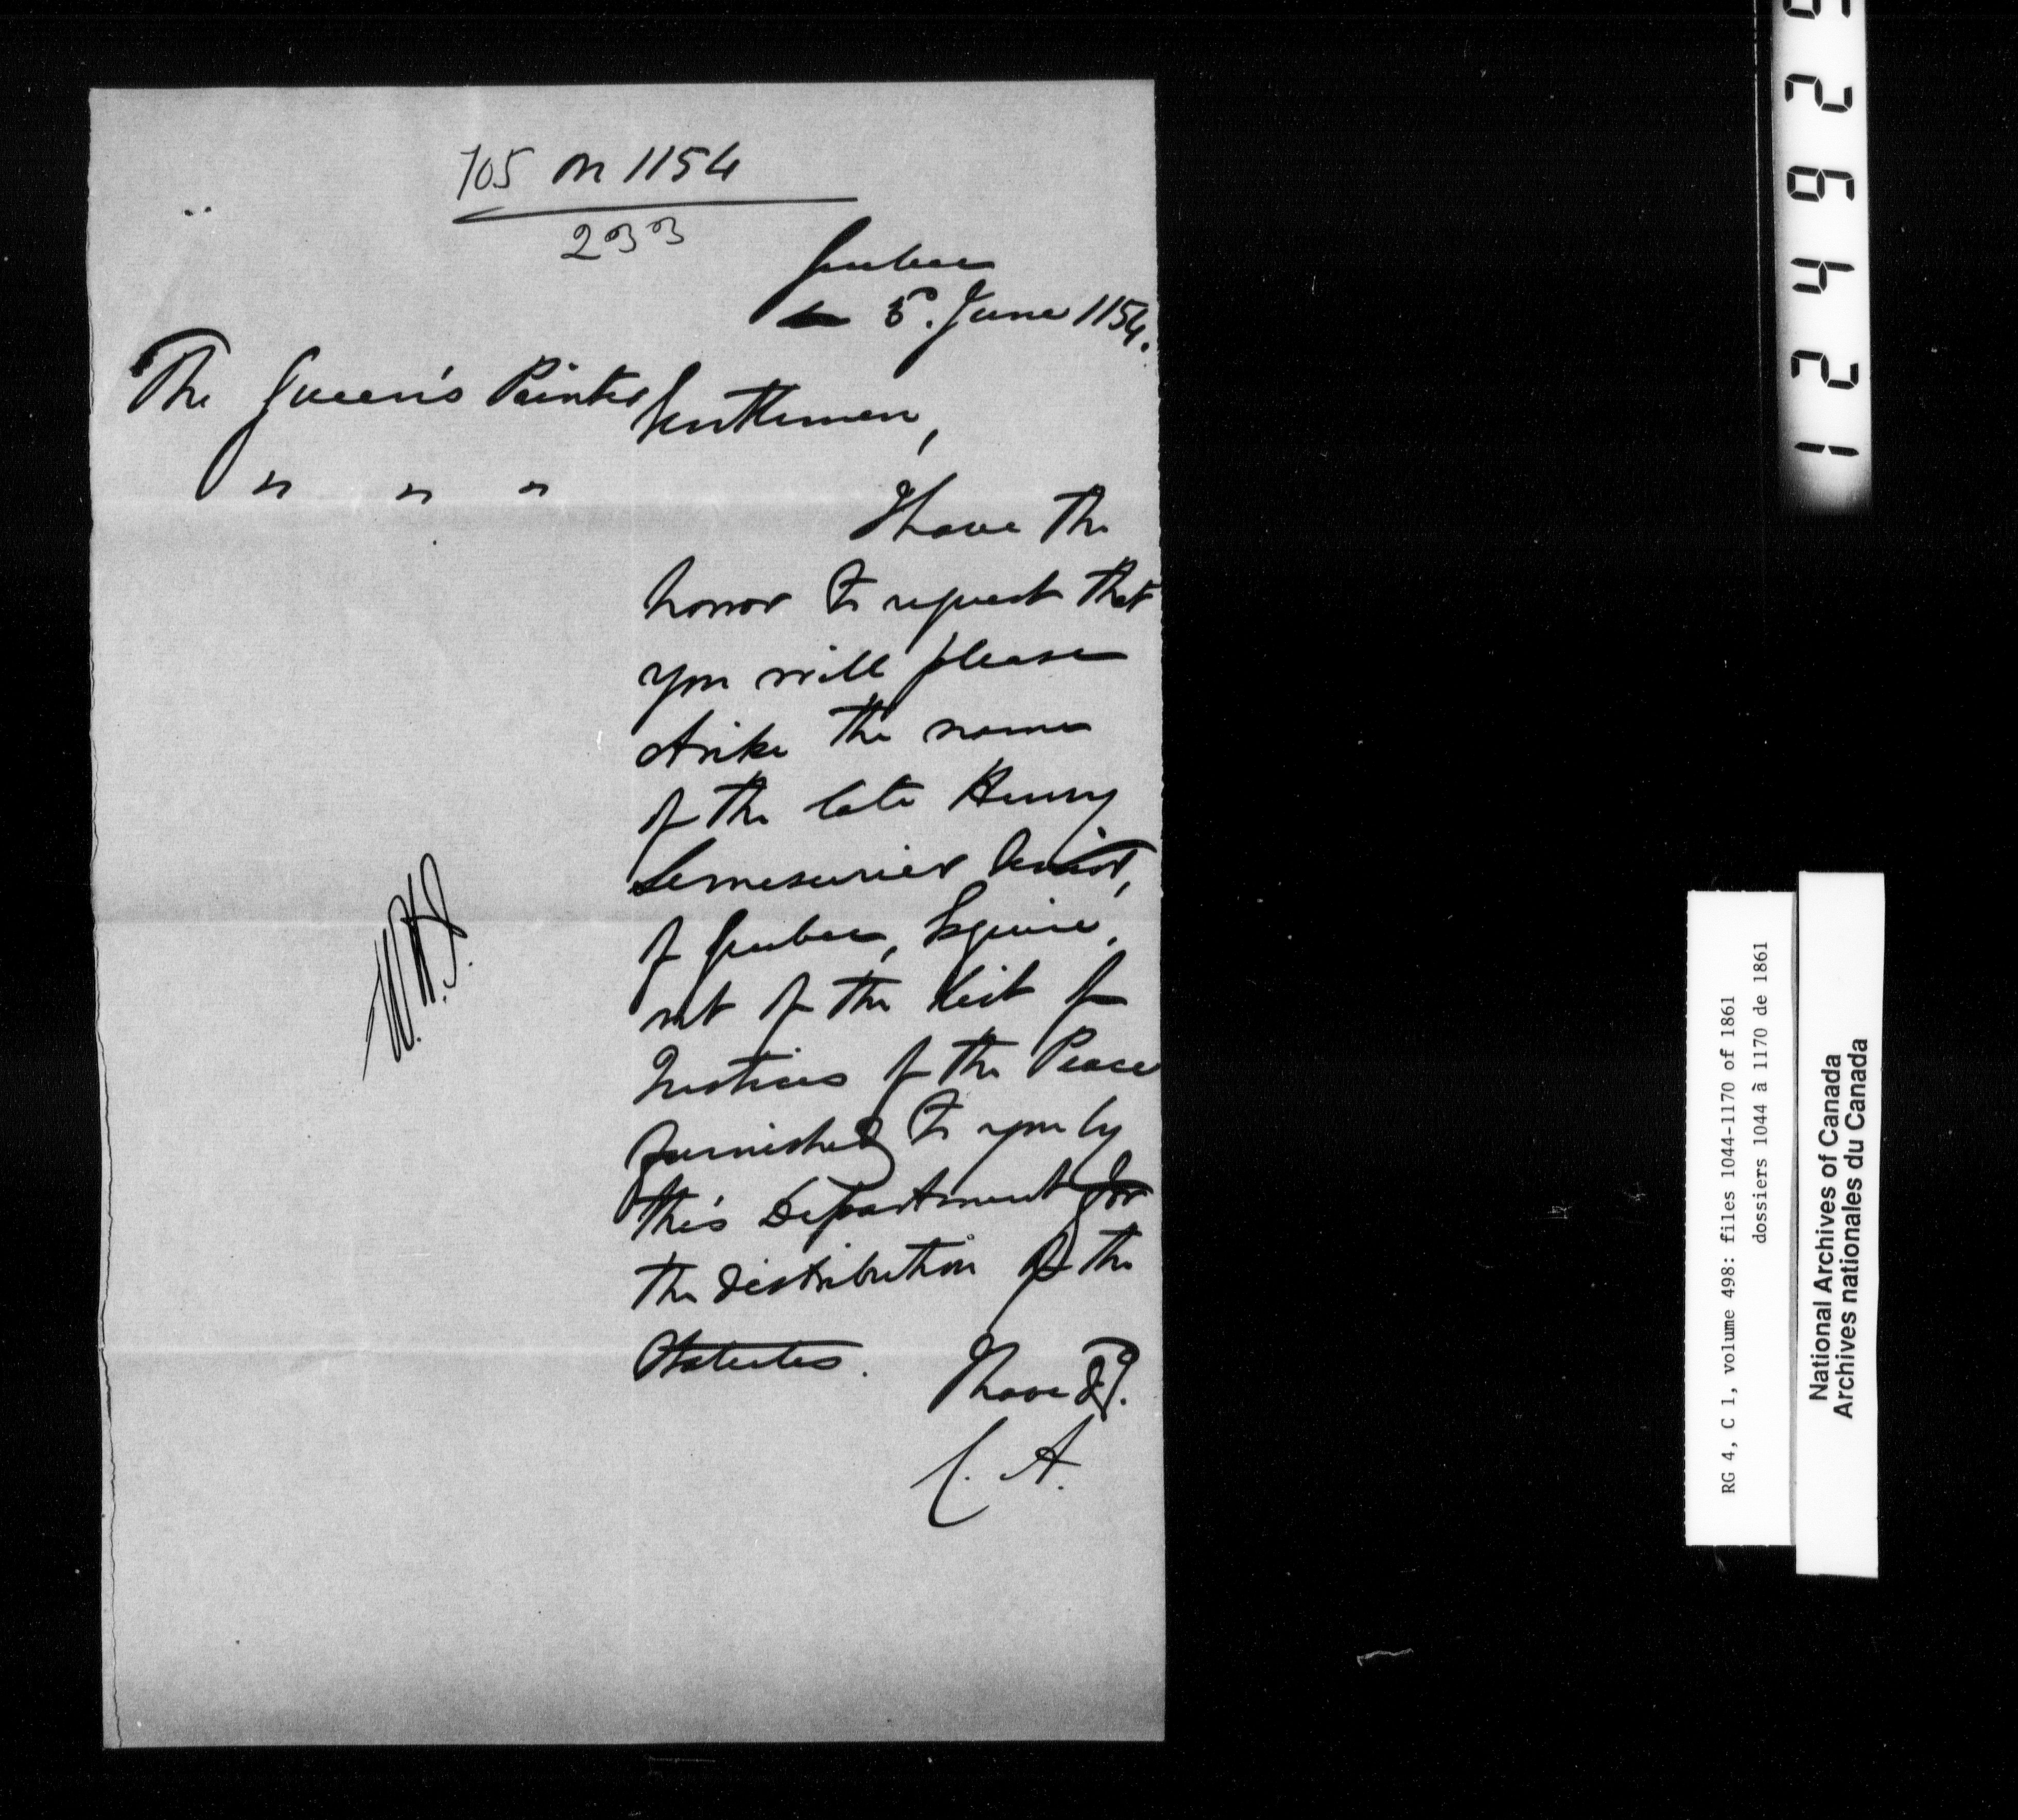 705 on 1154
233
Quebec
5. June 1154.
The Queen's Printer
Gentlemen,
" " "
I have the
honor to request that
you will please
strike the name
of the late Henry
Lemesurier
of Quebec, Esquire,
out of the list of
Justices of the Peace
furnished to you by
this Department for
the distribution of the
Statutes.
I have &c.
C. A.
W.H.J.
RG 4, C 1, volume 498: files 1044-1170 of 1861
dossiers 1044 à 1170 de 1861
National Archives of Canada
Archives nationales du Canada